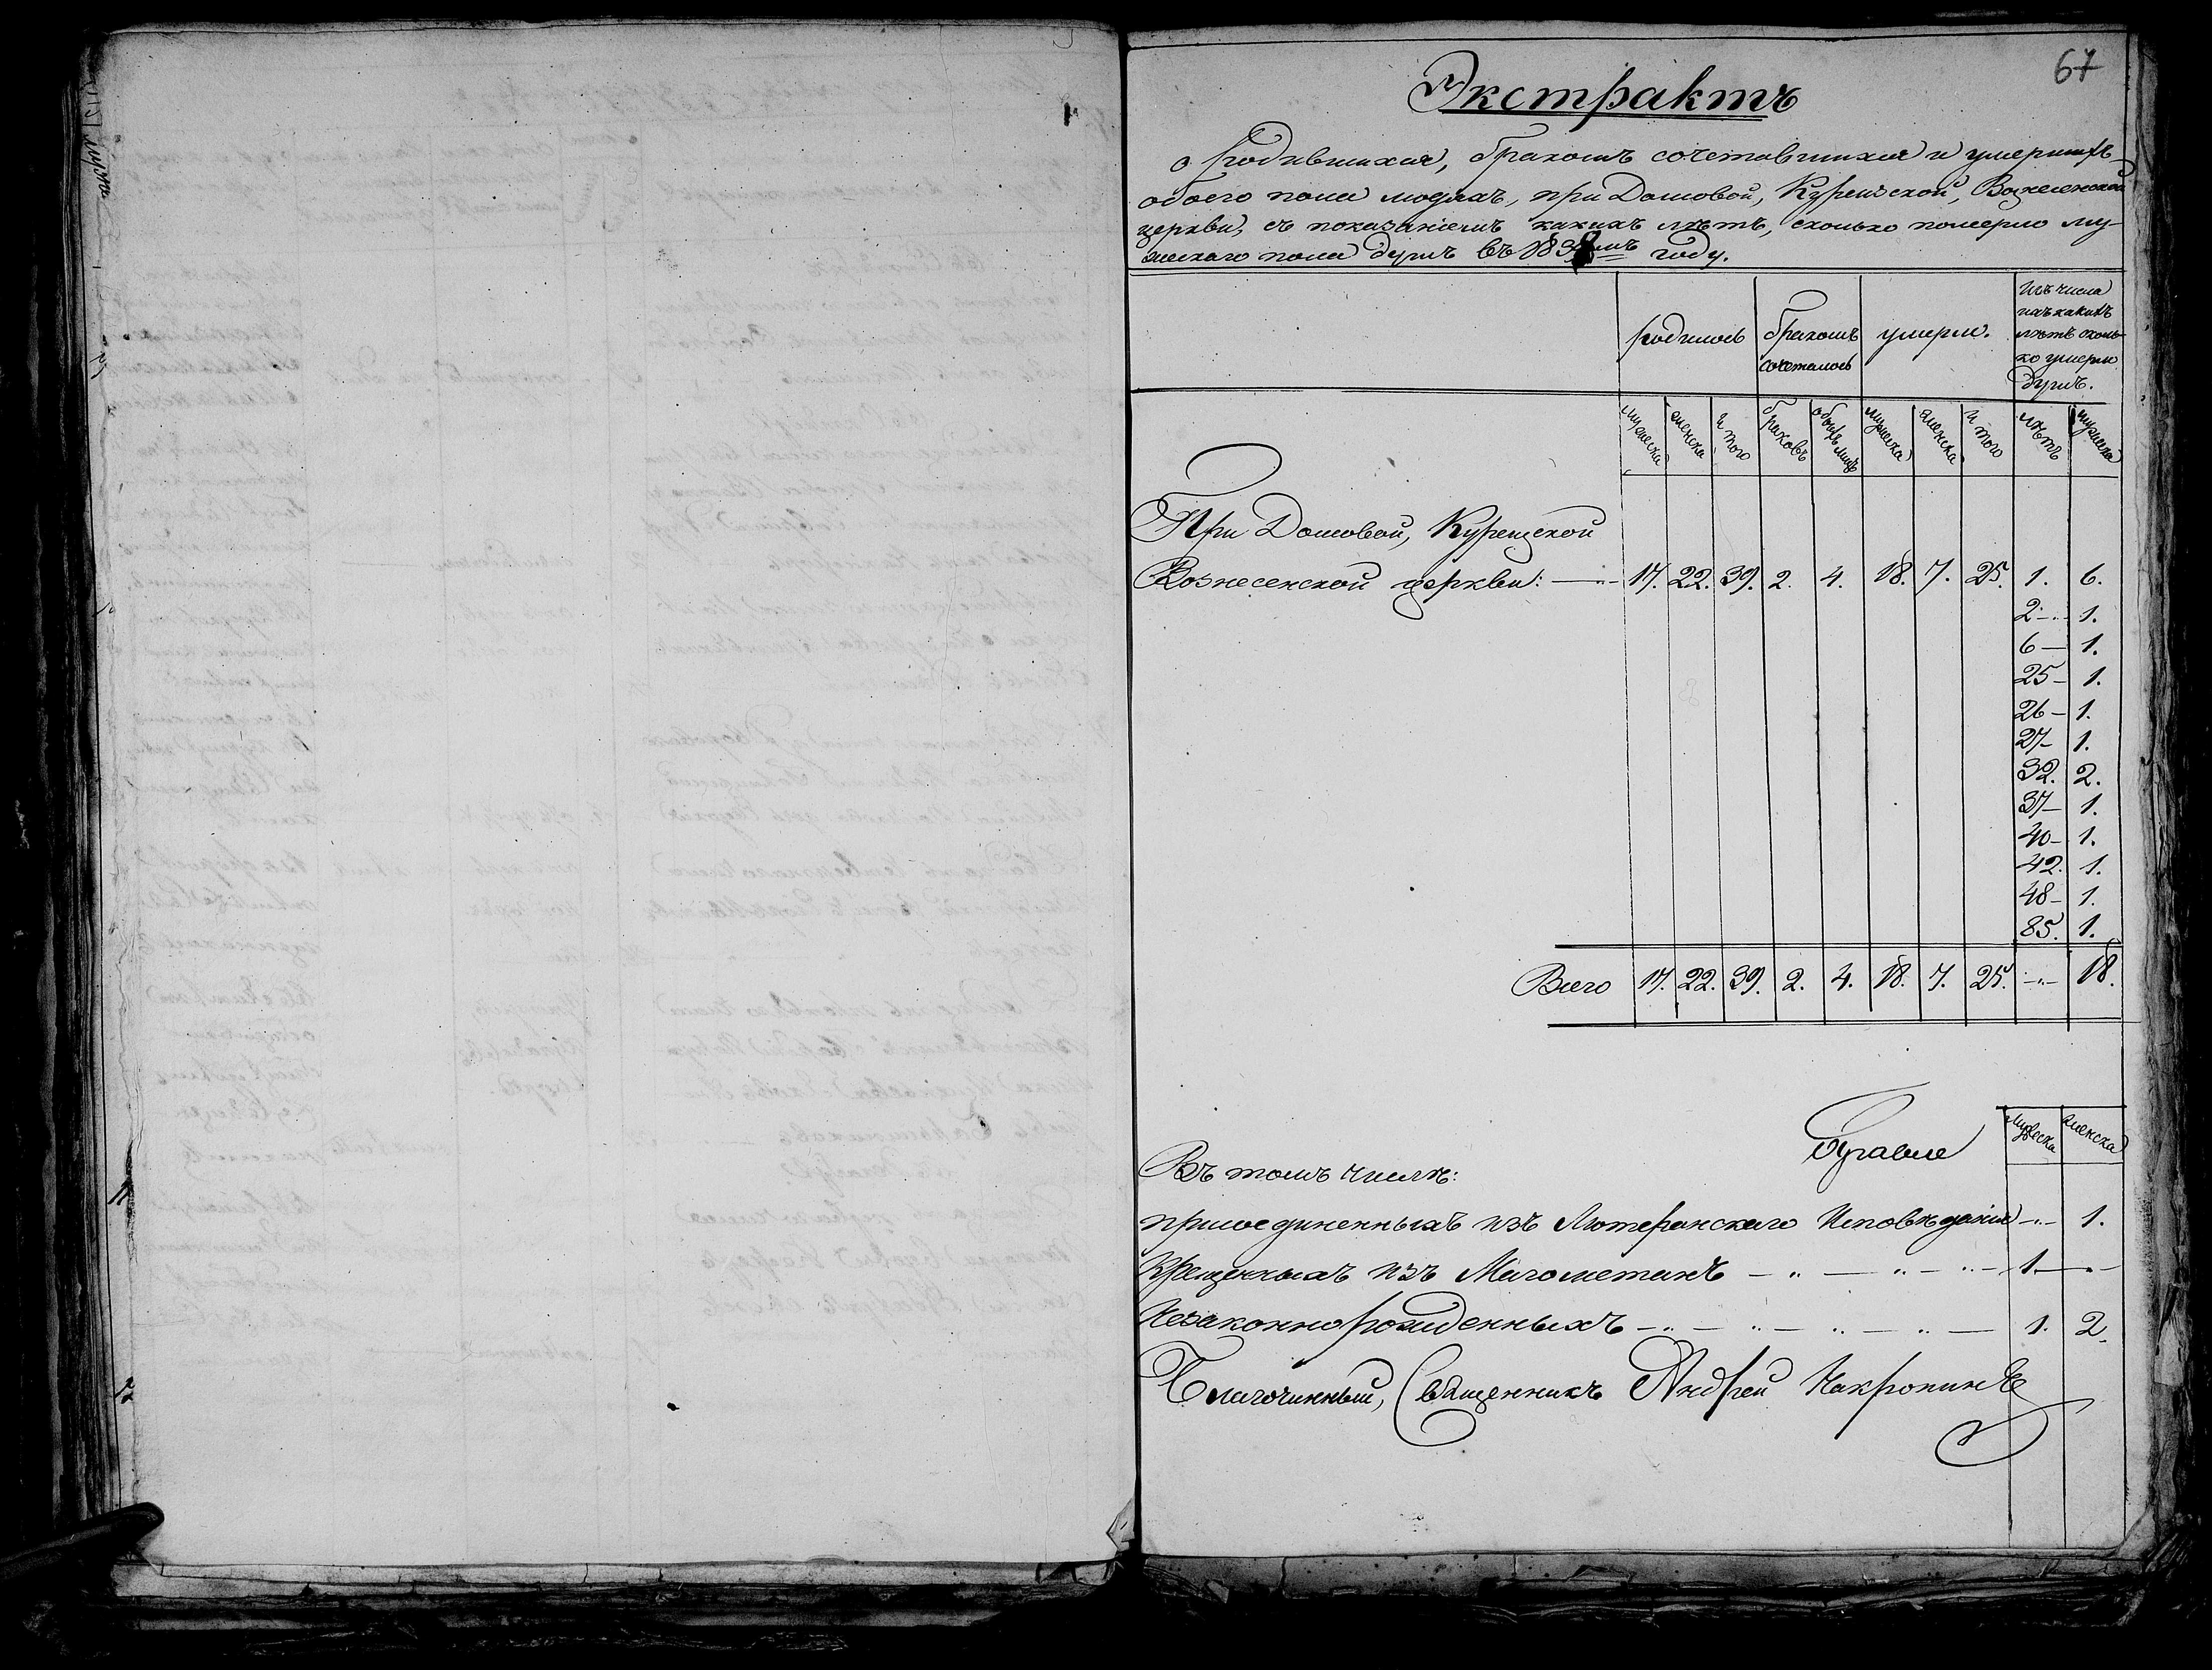 67
Экстрактъ
о родившихся, бракомъ сочетавшихся и умершихъ
обоего пола людяхъ, при Домовой, Вознесенской
церкви, съ показанiемъ какихъ лѣтъ, сколько померло му-
жескаго пола душъ въ 1838мъ году.
родилось бракомъ сочеталось умерли. Изъ числа
ихъ какихъ
лѣтъ сколь-
ко умерло
душъ.
мужеска женска и того браковъ обоихъ лицъ мужеска женска и того лѣтъ мужеска
При Домовой,
Вознесенской церкви: 17. 22. 39. 2. 4. 18. 7. 25. 1. 6.
2 1.
6 — 1.
25 – 1.
26 – 1.
27 – 1.
32. 2.
37 – 1.
40 – 1.
42. 1.
48 – 1.
85. 1.
Всего 17. 22. 39. 2. 4. 18. 7. 25. –"– 18.
мужеска женска
Въ томъ числѣ:
присоединенныхъ изъ Лютеранскаго Исповѣданiя –"– 1.
Крещенныхъ изъ Магометанъ – " — " – " – 1. –"–
Незаконнорожденныхъ – " — " — " — " — 1. 2.
Благочинный, Священникъ Андрей